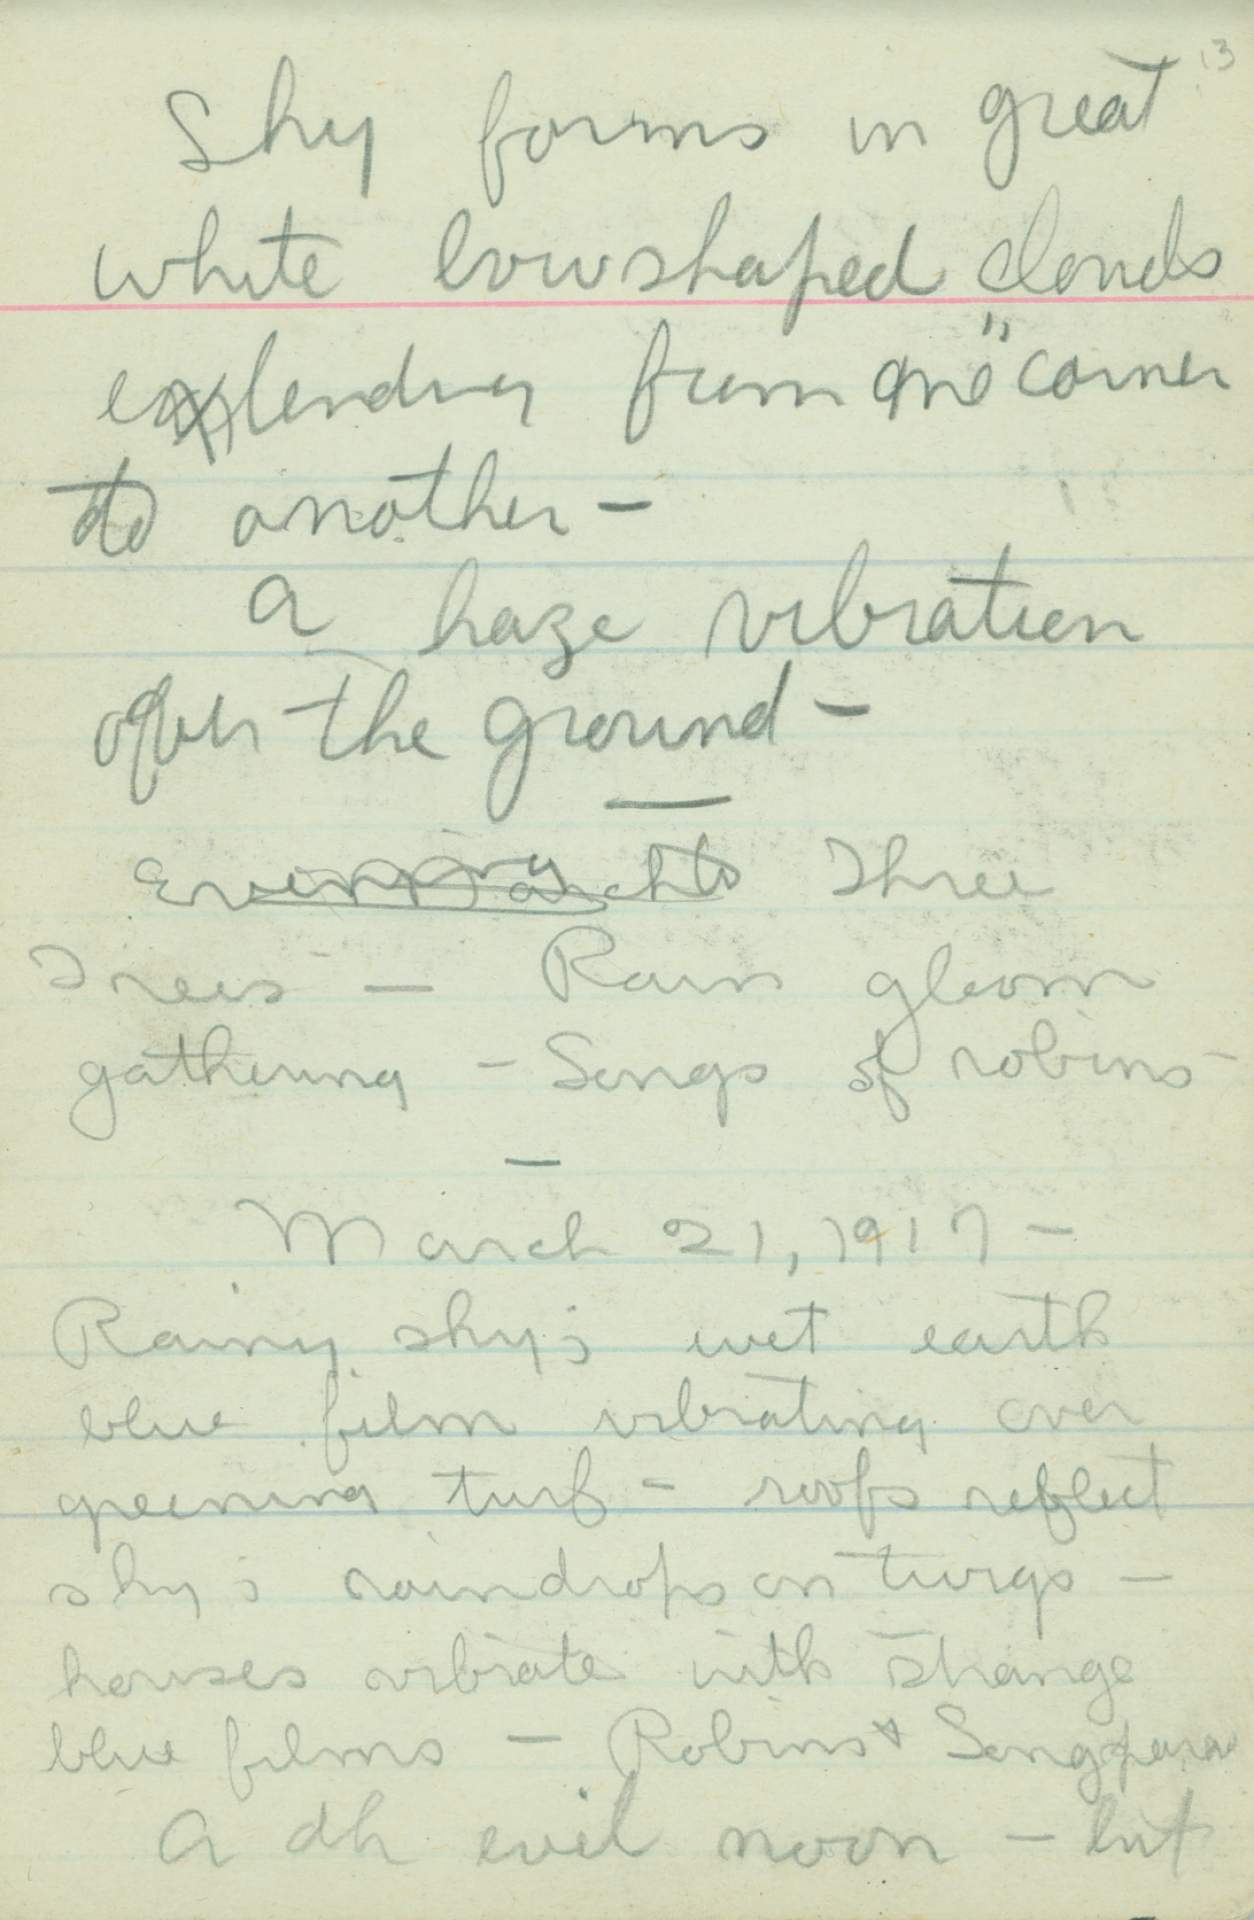 13
Sky forms in great
white bowshaped clouds
extending from one corner
to another —
A haze vibration
over the ground —
Evening Three
Trees — Rain gloom
gathering — Songs of robins —
March 21, 1917 —
Rainy sky; wet earth
blue film vibrating over
greening turf — roofs reflect
sky; raindrops on twigs —
houses vibrate with strange
blue films — Robins +
A dk evil noon — but